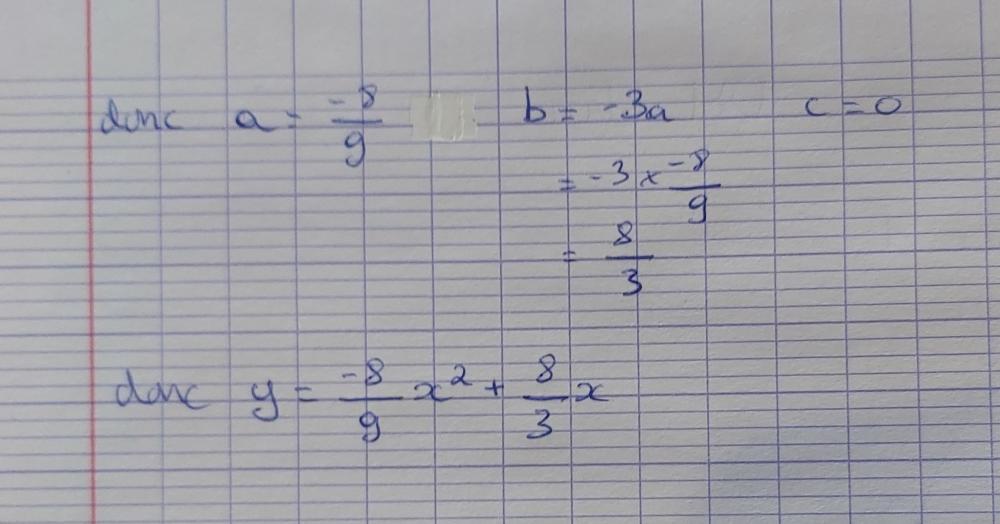 donc a = -8/9 b = -3a c = 0
= -3 × -8/9
= 8/3
donc y = -8/9 x² + 8/3 x